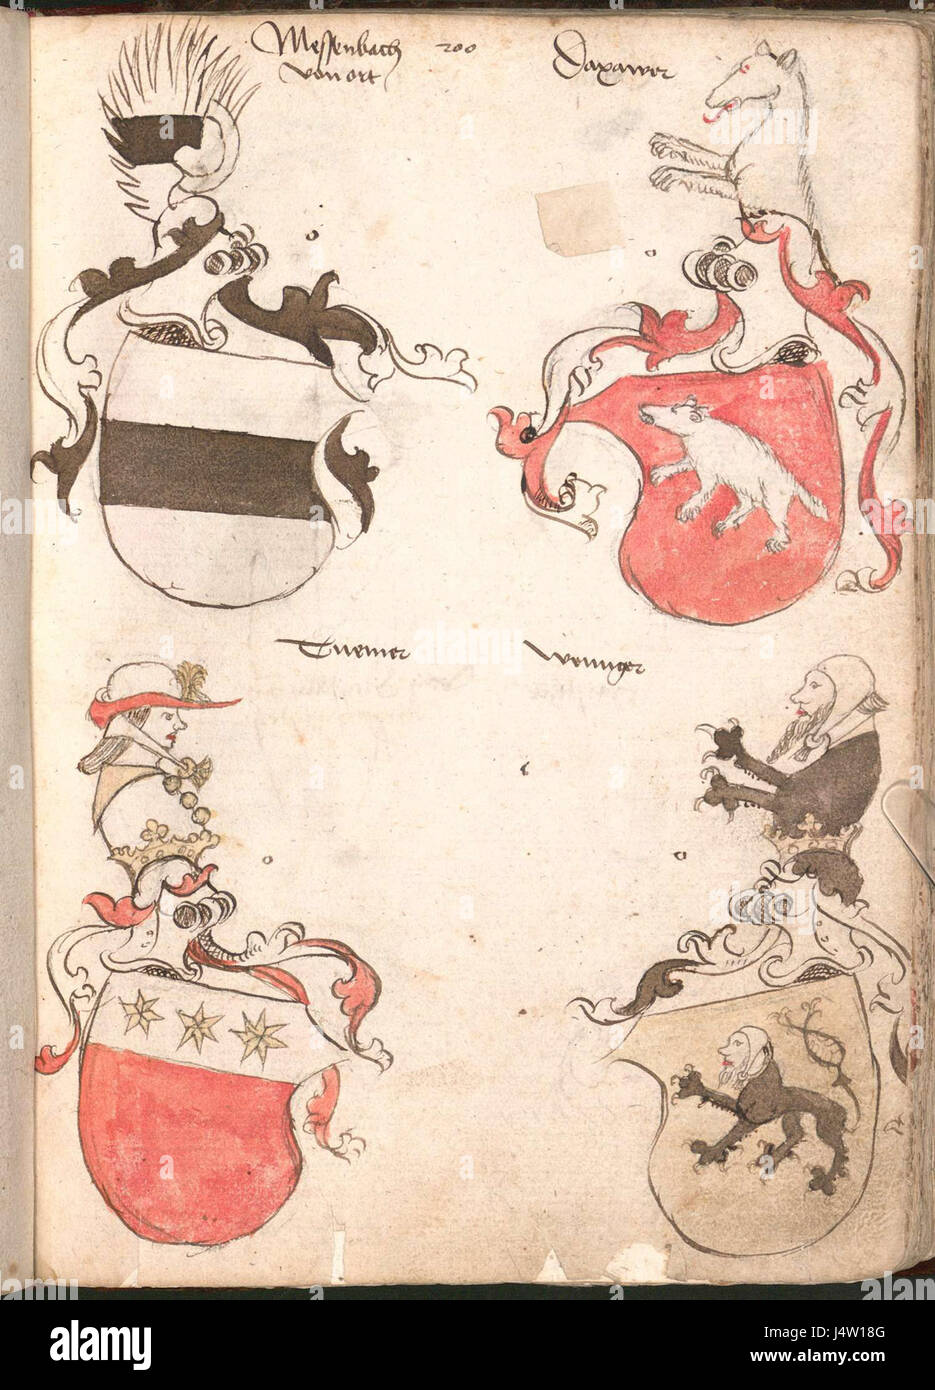 Messenbach
von ort
200
Daxawer
Tuemer
Wenniger
alamy
alamy
Image ID: J4W18G
www.alamy.com